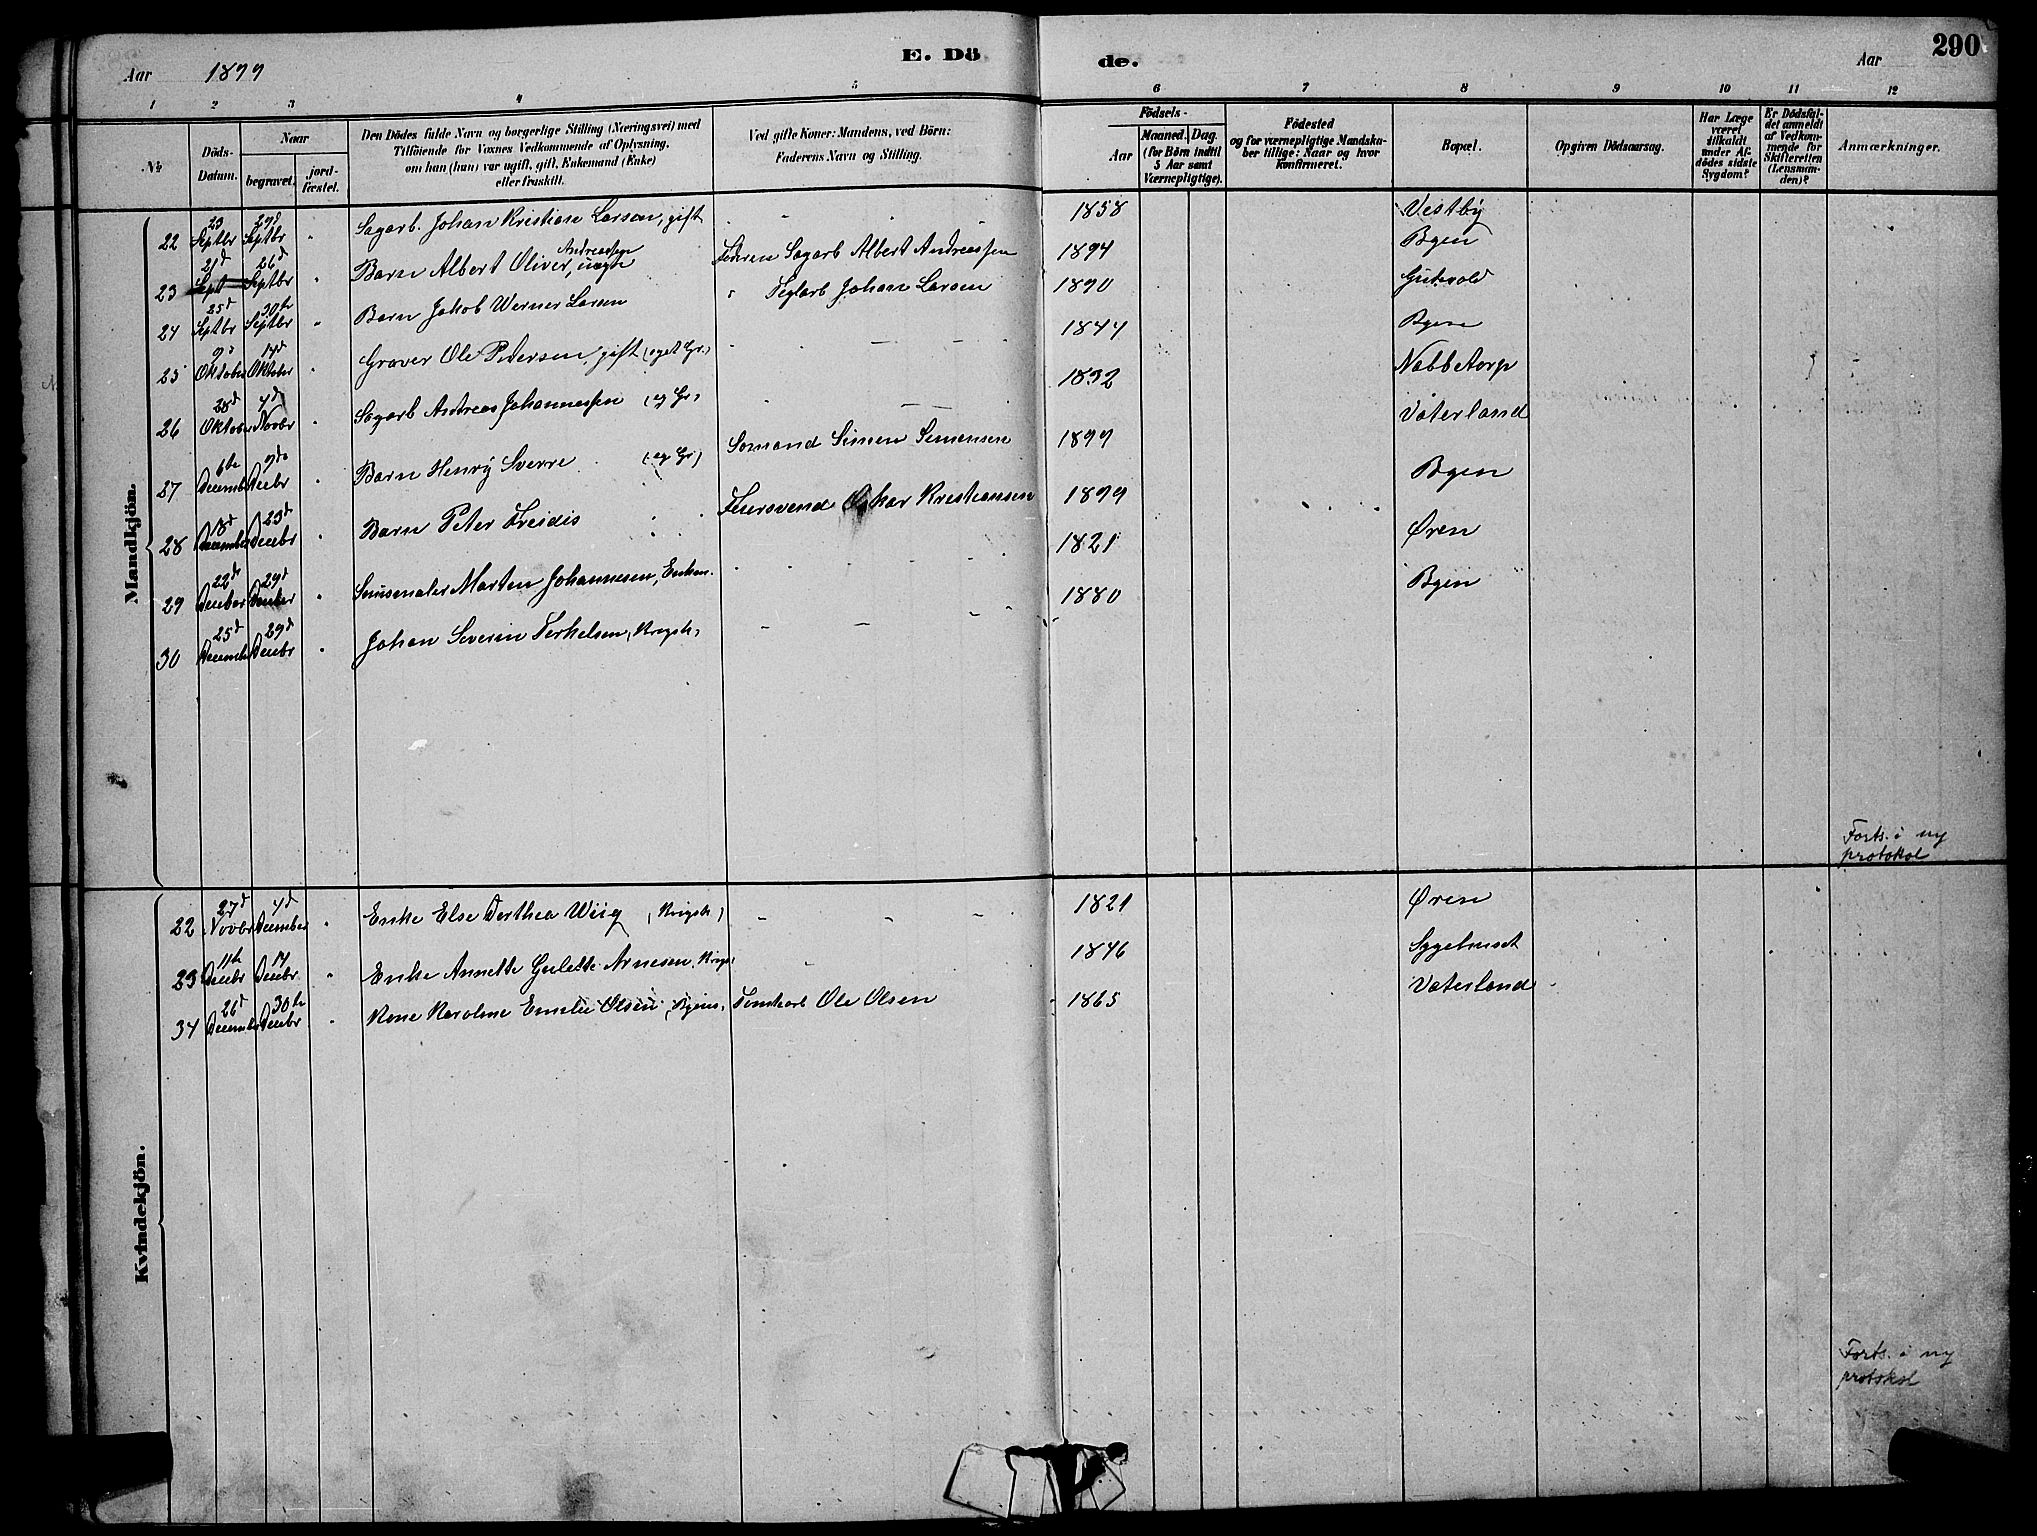 Aar 1899
E. Dö
de.
Aar
290
1 2 3 4 5 6 7 8 9 10 11 12
№
Döds-Datum.
Naar
begravet.
jord-fæstet.
Den Dödes fulde Navn og borgerlige Stilling (Næringsvei) med
Tilföiende for Voxnes Vedkommende af Oplysning,
om han (hun) var ugift, gift, Enkemand (Enke)
eller fraskilt.
Ved gifte Koner: Mandens, ved Börn:
Faderens Navn og Stilling.
Födsels-
Aar
Maaned. Dag.
(for Börn indtil
5 Aar samt
Værnepligtige).
Födested
og for værnepligtige Mandska-
ber tillige: Naar og hvor
konfirmeret.
Bopæl.
Opgiven Dödsaarsag.
Har Læge
været
tilkaldt
under Af-
dödes sidste
Sygdom?
Er Dödsfal-
det anmeldt
af Vedkom-
mende for
Skifteretten
(Lensman-
den)?
Anmærkninger.
Mandkjön.
22 23 Septbr 29d Septbr " Sagarb. Johan Kristian Larsen, gift - - 1858 Vestby
23 21d Sept 26d Septbr " Barn Albert Oliver Andreassen, uægte Faderen Sagarb Albert Andreassen 1894 Byen
24 25d Septbr 30te Septbr " Barn Jakob Werner Larsen " Teglarb Johan Larsen 1890 Gudevold
25 9d Oktober 14d Oktober " Graver Ole Petersen, gift (eget Gr.) - - - 1844 Byen
26 28d Oktober 4d Novbr " Sagarb Andreas Johannessen (eg Gr) - - 1832 Nabbetorp
27 6te Decemb 9de Decbr Barn Henry Sverre (eg Gr) Sømand Simen Simensen 1899 Vaterland
28 18d December 23d Decbr " Barn Peter Freidis Feiersvend Oskar Kristiansen 1899 Byen
29 22de Decber 29d December " Snusmaler Morten Johannesen, Enkem. - - - 1821 Øren
30 25d Decemb 29d Decbr " Johan Severin Terkelsen, Krigsk, - - - 1880 Byen
Forts. i ny
protokol
Kvindekjön.
22 27d Novbr 4d December " Enke Else Dorthea Wiig (Krigsk,) - - - 1821 Øren
23 11te Decbr 17 Decbr. " Enke Annette Gulette Arnesen, Krigs, - - 1846 Sygehuset
34 26d December 30te Decbr " Kone Karoline Emilie Olsen, Byens, Tomtearb Ole Olsen 1865 Vaterland
Forts. i ny
protokol